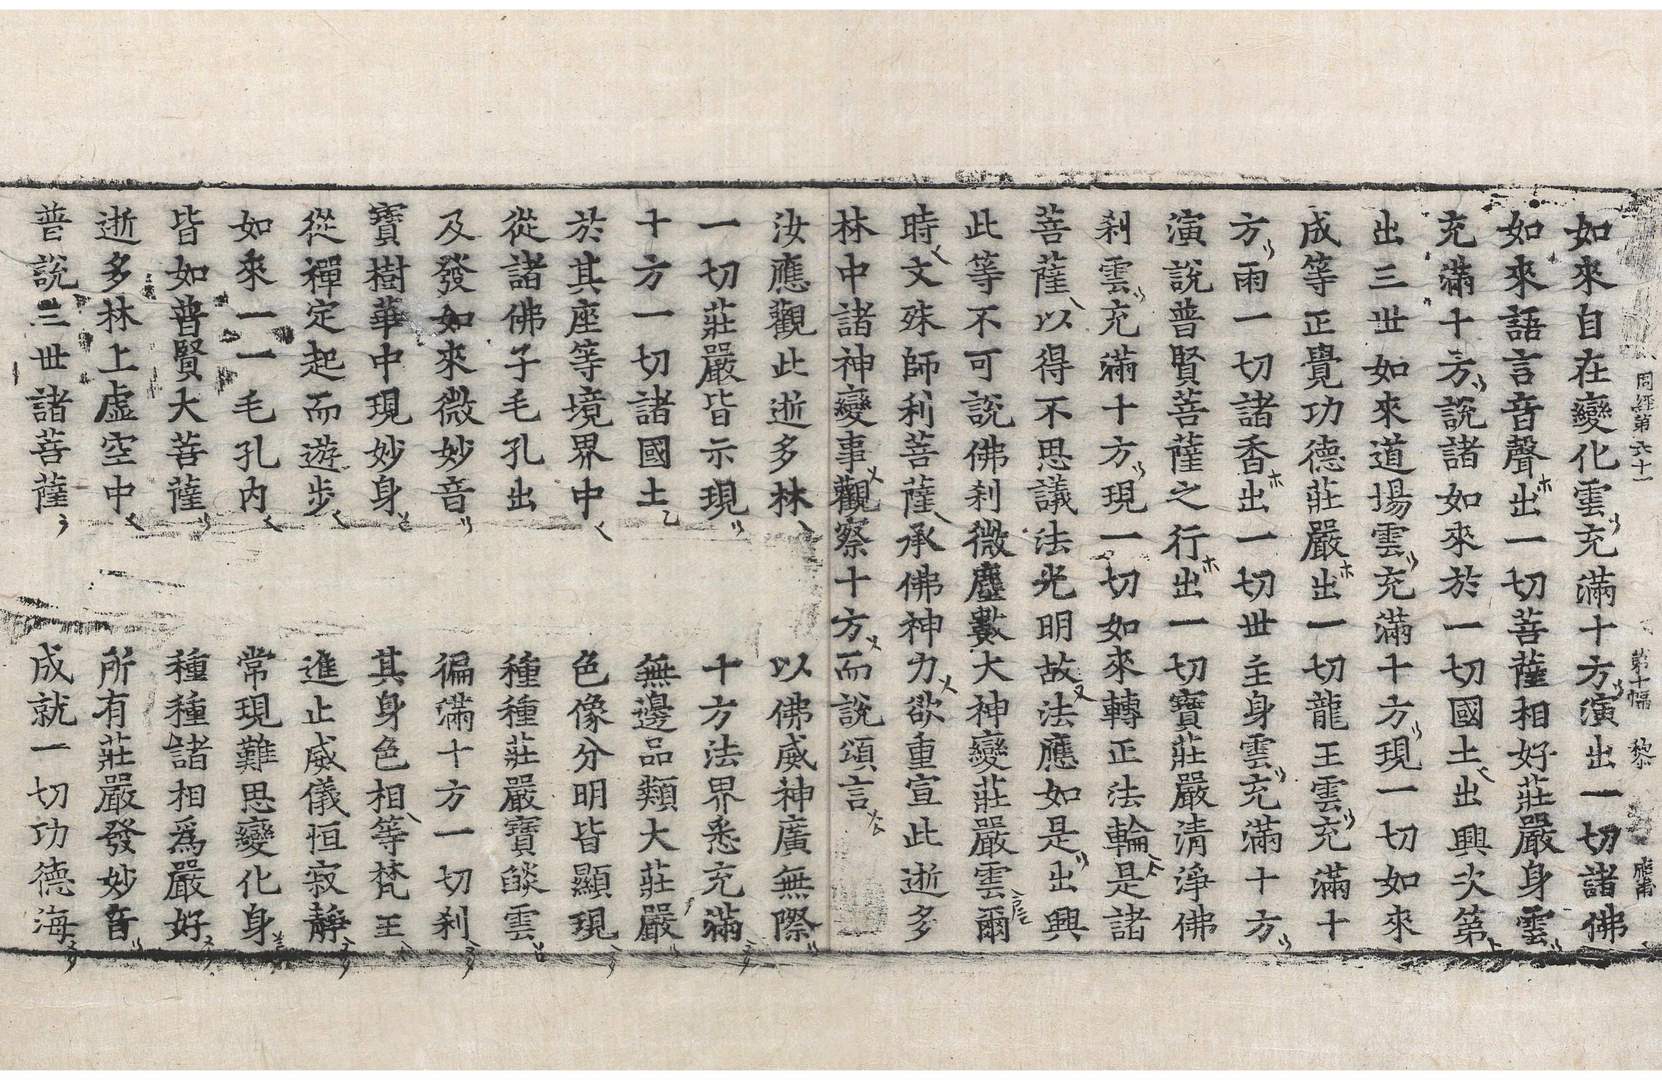 周經第六十一 第十幅 黎
如來自在變化雲充滿十方演出一切諸佛
如來語言音聲出一切菩薩相好莊嚴身雲
充滿十方說諸如來於一切國土出興次第
出三世如來道場雲充滿十方現一切如來
成等正覺功德莊嚴出一切龍王雲充滿十
方雨一切諸香出一切世主身雲充滿十方
演說普賢菩薩之行出一切寶莊嚴清淨佛
刹雲充滿十方現一切如來轉正法輪是諸
菩薩以得不思議法光明故法應如是出興
此等不可說佛刹微塵數大神變莊嚴雲爾
時文殊師利菩薩承佛神力欲重宣此逝多
林中諸神變事觀察十方而說頌言
汝應觀此逝多林 以佛威神廣無際
一切莊嚴皆示現 十方法界悉充滿
十方一切諸國土 無邊品類大莊嚴
於其座等境界中 色像分明皆顯現
從諸佛子毛孔出 種種莊嚴寶燄雲
及發如來微妙音 徧滿十方一切刹
寶樹華中現妙身 其身色相等梵王
從禪定起而遊步 進止威儀恒寂靜
如來一一毛孔內 常現難思變化身
皆如普賢大菩薩 種種諸相爲嚴好
逝多林上虛空中 所有莊嚴發妙音
普說三世諸菩薩 成就一切功德海